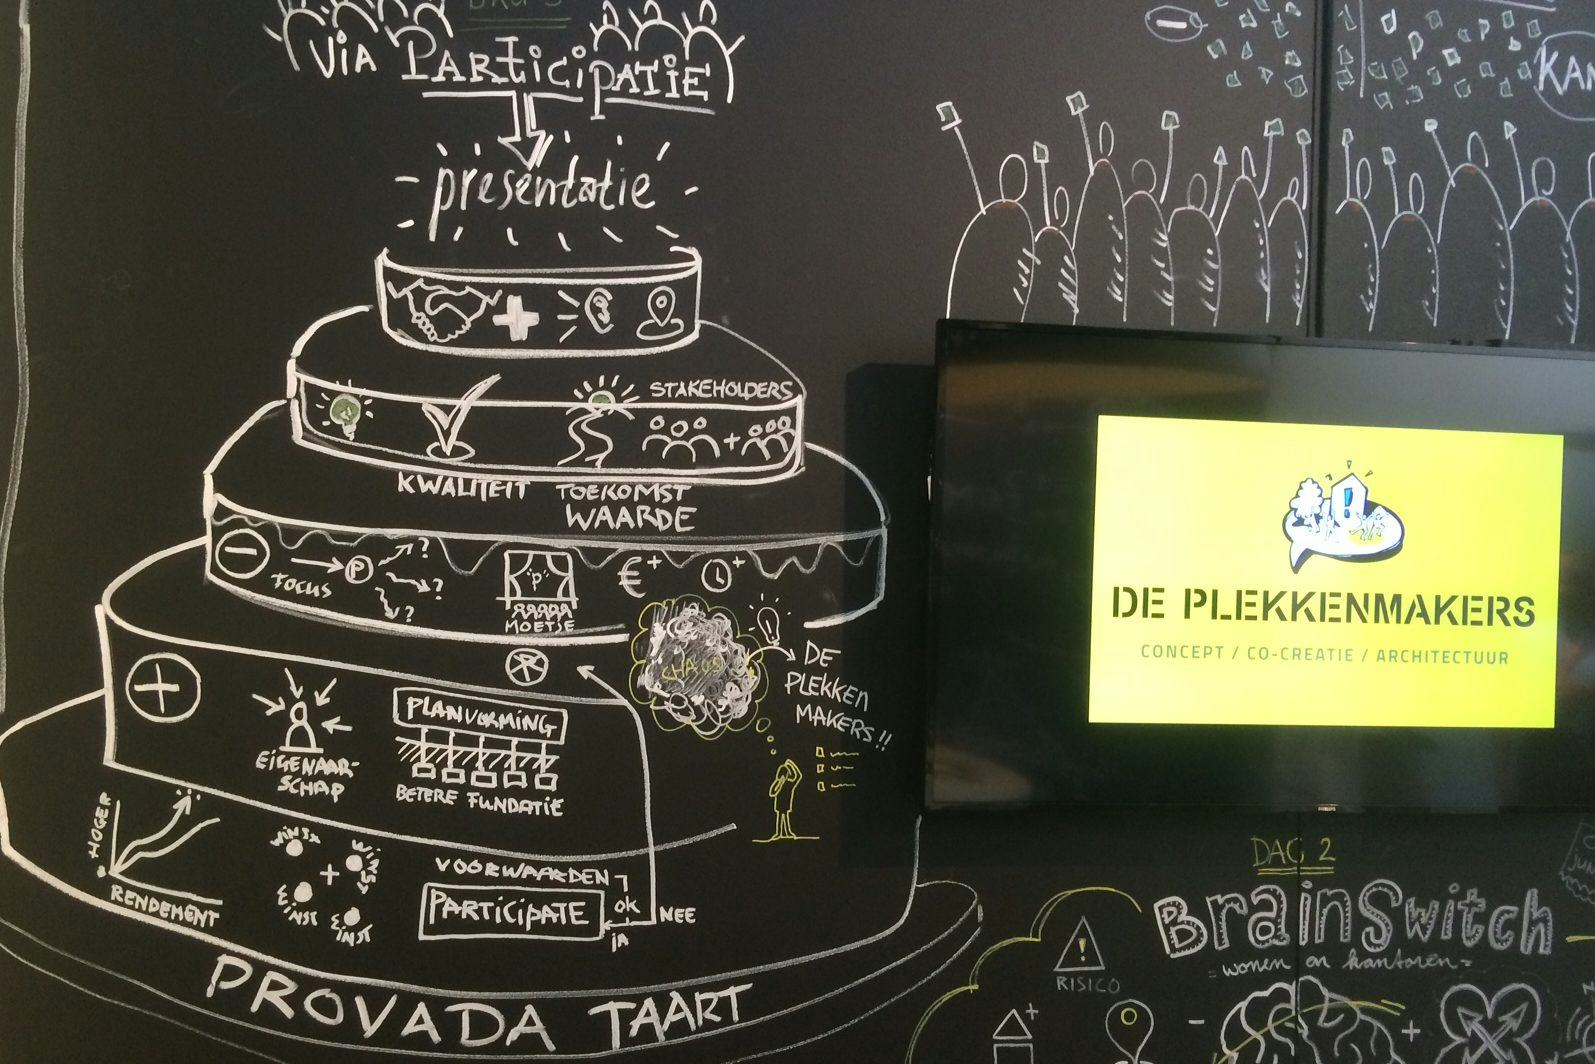 VIA PARTICIPATIE
presentatie
STAKEHOLDERS
KWALITEIT
TOEKOMST
WAARDE
FOCUS
P
?
?
?
"P"
MOETJE
€+
CHAOS
DE
PLEKKEN
MAKERS!!
PLANVORMING
EIGENAAR-
SCHAP
BETERE FUNDATIE
HOGER
RENDEMENT
WINST
WINST
WINST
WINST
VOORWAARDEN
OK
PARTICIPATE
JA
NEE
PROVADA TAART
KAN
DE PLEKKENMAKERS
CONCEPT / CO-CREATIE / ARCHITECTUUR
PHILIPS
DAG 2
BrainSwitch
= wonen en kantoren =
!
RISICO